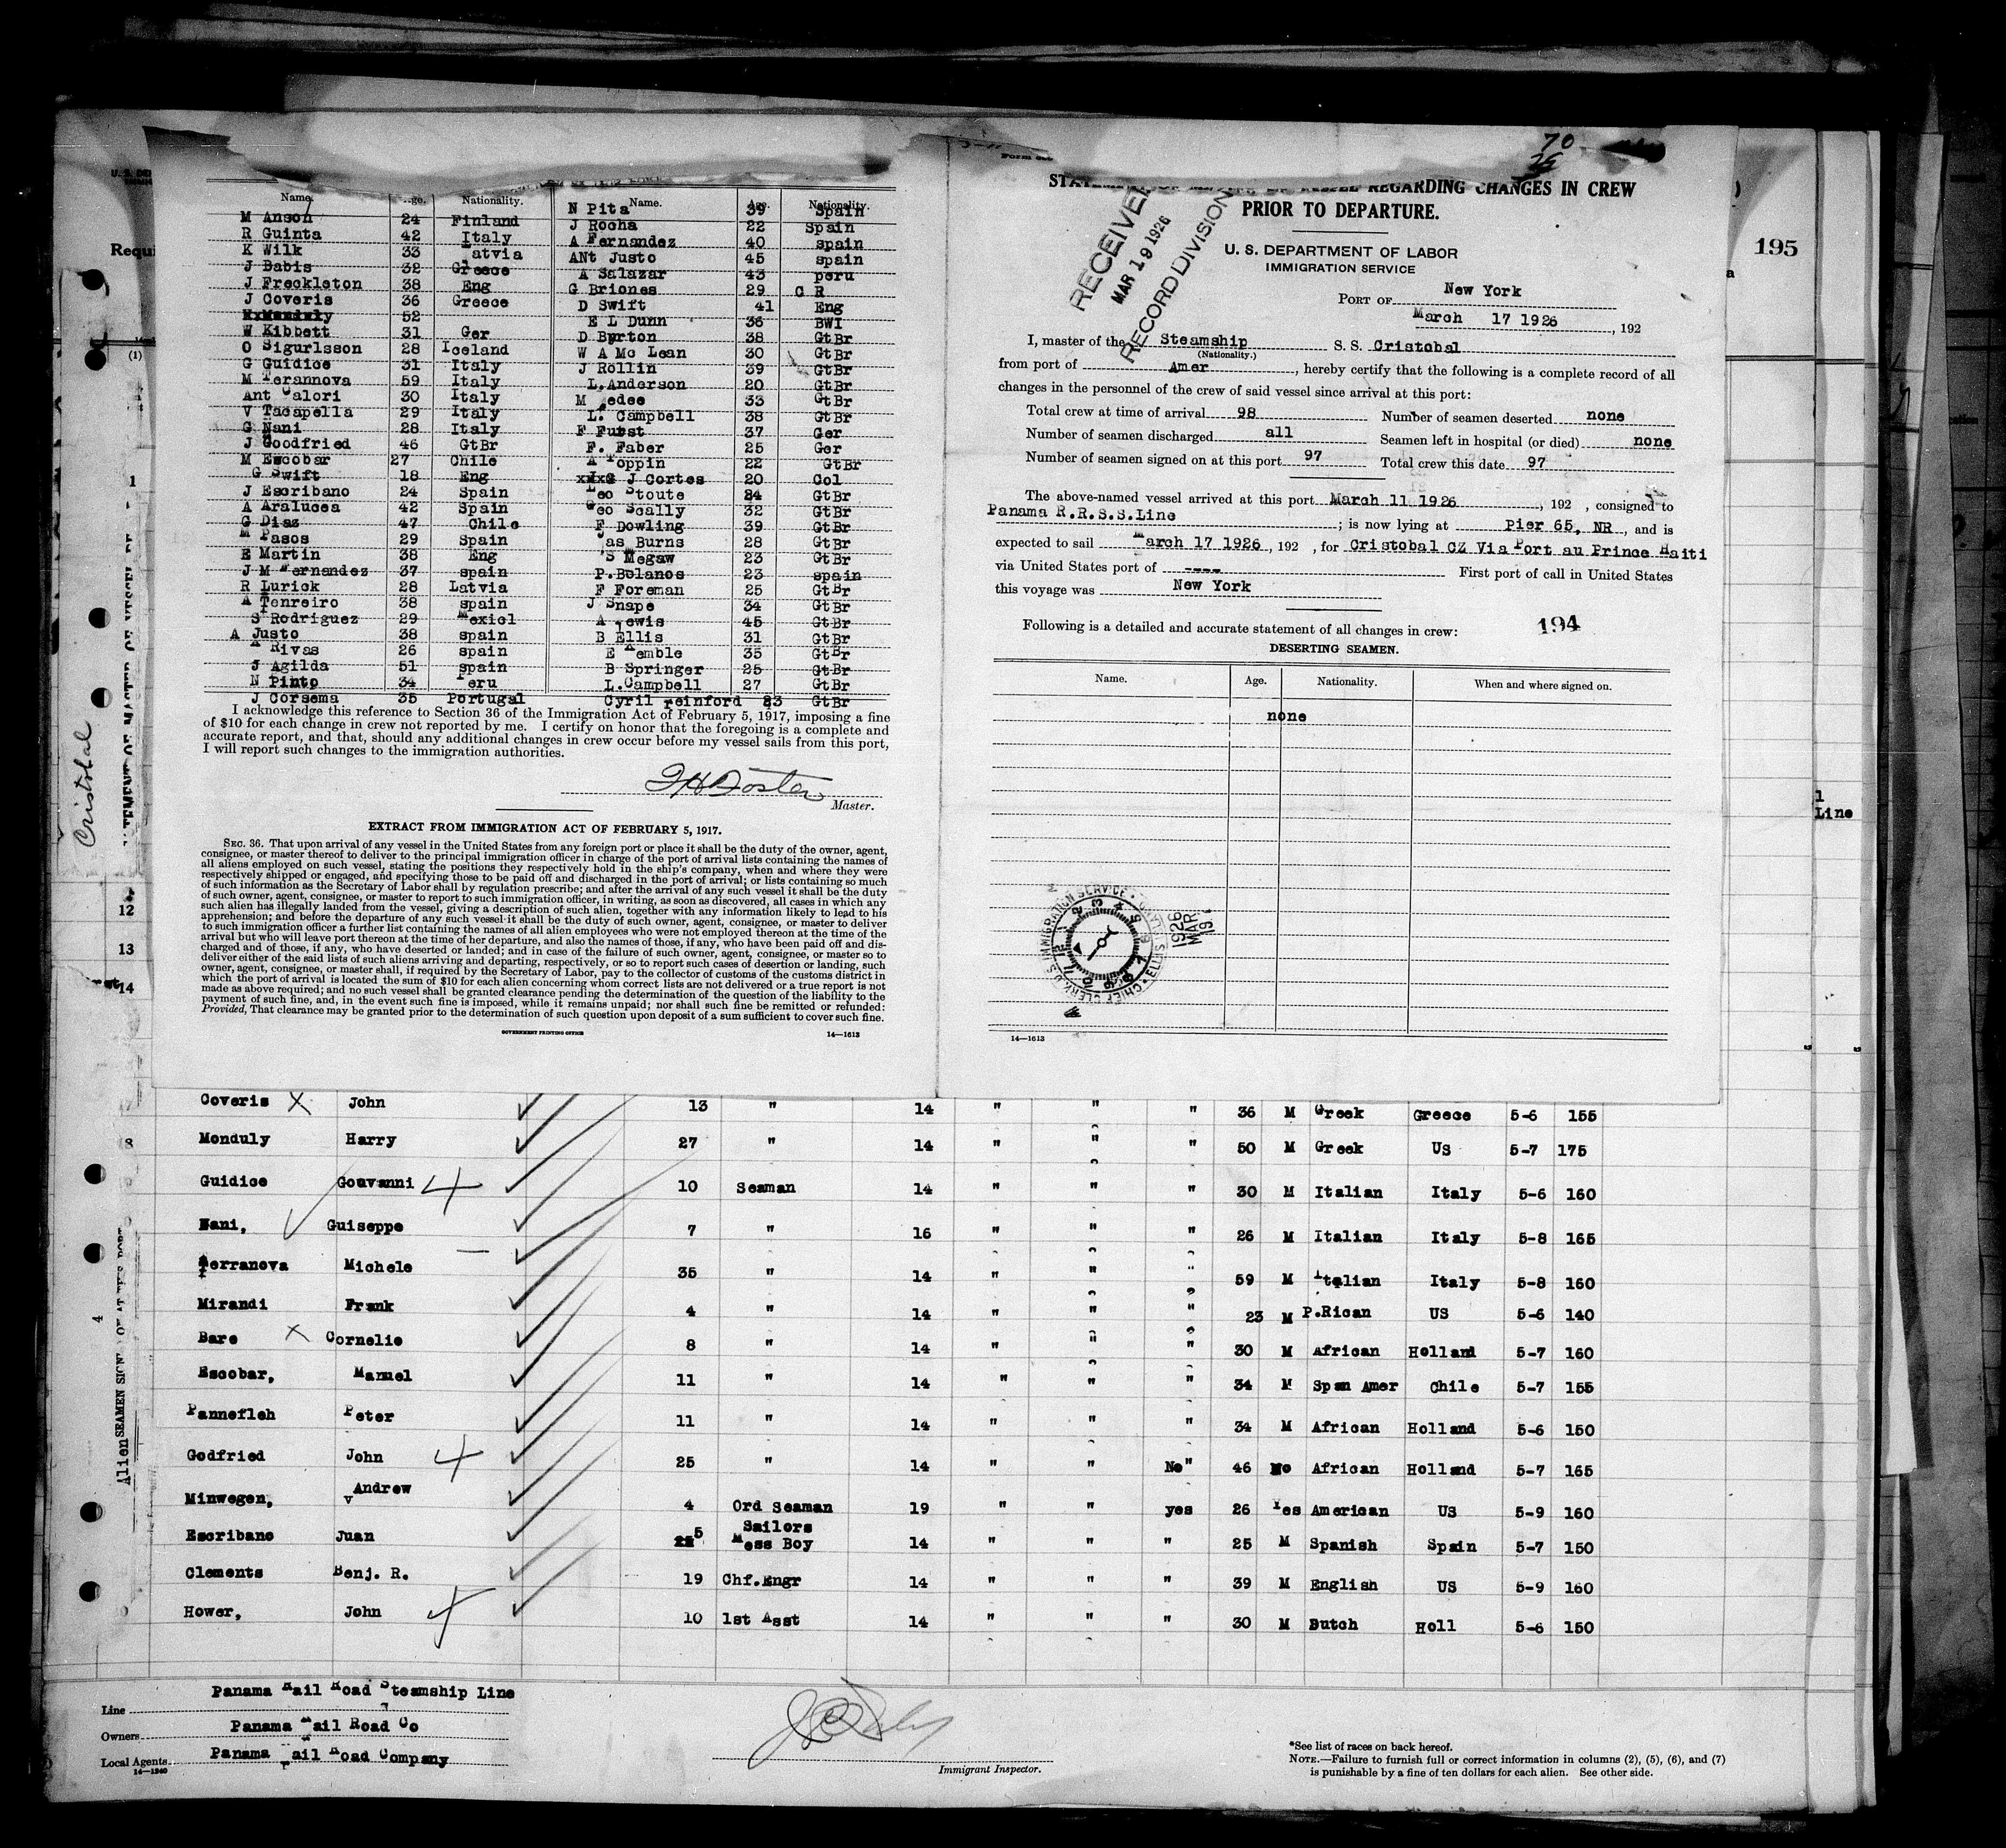 Name. Age. Nationality. Name. Age. Nationality.
M Anson 24 Finland N Pita 39 Spain
R Guinta 42 Italy J Rocha 22 Spain
K Wilk 33 Latvia A Fernandez 40 spain
J Babis 32 Greece ANt Justo 45 spain
J Freckleton 38 Eng A Salazar 43 peru
J Coveris 36 Greece G Briones 29 C R
52 D Swift 41 Eng
W Kibbett 31 Ger E L Dunn 36 BWI
O Sigurlsson 28 Iceland D Byrton 38 GtBr
G Guidice 31 Italy W A Mc Lean 30 GtBr
M Terannova 59 Italy J Rollin 39 GtBr
Ant Calori 30 Italy L.Anderson 20 GtBr
V Tacapella 29 Italy M edee 33 GtBr
G Nani 28 Italy L. Campbell 38 GtBr
J Goodfried 46 GtBr F Furst 37 Ger
M Escobar 27 Chile F. Faber 25 Ger
G Swift 18 Eng A Toppin 22 GtBr
J Escribano 24 Spain J Cortes 20 Col
A Aralucea 42 Spain Leo Stoute 24 GtBr
G Diaz 47 Chile Geo Scally 32 GtBr
M Pasos 29 Spain F Dowling 39 GtBr
E Martin 38 Eng Jas Burns 28 GtBr
J M Fernandez 37 spain S Megaw 23 GtBr
R Lurick 28 Latvia P.Bolanos 23 spain
A Tenreiro 38 spain F Foreman 25 GtBr
S Rodriguez 29 Mexicl J Snape 34 GtBr
A Justo 38 spain A Lewis 45 GtBr
A Rivas 26 spain B Ellis 31 GtBr
J Agilda 51 spain E Kemble 35 GtBr
N Pinto 34 Peru B Springer 25 GtBr
J Corsema 35 Portugal L.Campbell 27 GtBr
Cyril reinford 23 GtBr
I acknowledge this reference to Section 36 of the Immigration Act of February 5, 1917, imposing a fine
of $10 for each change in crew not reported by me. I certify on honor that the foregoing is a complete and
accurate report, and that, should any additional changes in crew occur before my vessel sails from this port,
I will report such changes to the immigration authorities.
Foster
Master.
EXTRACT FROM IMMIGRATION ACT OF FEBRUARY 5, 1917.
SEC. 36. That upon arrival of any vessel in the United States from any foreign port or place it shall be the duty of the owner, agent,
consignee, or master thereof to deliver to the principal immigration officer in charge of the port of arrival lists containing the names of
all aliens employed on such vessel, stating the positions they respectively hold in the ship's company, when and where they were
respectively shipped or engaged, and specifying those to be paid off and discharged in the port of arrival; or lists containing so much
of such information as the Secretary of Labor shall by regulation prescribe; and after the arrival of any such vessel it shall be the duty
of such owner, agent, consignee, or master to report to such immigration officer, in writing, as soon as discovered, all cases in which any
such alien has illegally landed from the vessel, giving a description of such alien, together with any information likely to lead to his
apprehension; and before the departure of any such vessel it shall be the duty of such owner, agent, consignee, or master to deliver
to such immigration officer a further list containing the names of all alien employees who were not employed thereon at the time of the
arrival but who will leave port thereon at the time of her departure, and also the names of those, if any, who have been paid off and dis-
charged and of those, if any, who have deserted or landed; and in case of the failure of such owner, agent, consignee, or master so to
deliver either of the said lists of such aliens arriving and departing, respectively, or so to report such cases of desertion or landing, such
owner, agent, consignee, or master shall, if required by the Secretary of Labor, pay to the collector of customs of the customs district in
which the port of arrival is located the sum of $10 for each alien concerning whom correct lists are not delivered or a true report is not
made as above required; and no such vessel shall be granted clearance pending the determination of the question of the liability to the
payment of such fine, and, in the event such fine is imposed, while it remains unpaid; nor shall such fine be remitted or refunded:
Provided, That clearance may be granted prior to the determination of such question upon deposit of a sum sufficient to cover such fine.
GOVERNMENT PRINTING OFFICE 14—1613
70
REGARDING CHANGES IN CREW
PRIOR TO DEPARTURE.
U. S. DEPARTMENT OF LABOR
IMMIGRATION SERVICE
RECEIVED
MAR 19 1926
RECORD DIVISION
PORT OF New York
March 17 1926, 192
I, master of the Steamship S. S. Cristobal
(Nationality.)
from port of Amer, hereby certify that the following is a complete record of all
changes in the personnel of the crew of said vessel since arrival at this port:
Total crew at time of arrival 98 Number of seamen deserted none
Number of seamen discharged all Seamen left in hospital (or died) none
Number of seamen signed on at this port 97 Total crew this date 97
The above-named vessel arrived at this port March 11 1926, 192 , consigned to
Panama R.R.S.S.Line; is now lying at Pier 65, NR, and is
expected to sail March 17 1926, 192 , for Cristobal CZ Via Port au Prince Haiti
via United States port of ---- First port of call in United States
this voyage was New York
Following is a detailed and accurate statement of all changes in crew: 194
DESERTING SEAMEN.
Name. Age. Nationality. When and where signed on.
none
U.S. IMMIGRATION SERVICE ELLIS ISLAND CHIEF CLERK
1926 MAR 19
14—1613
195
Requi
(1)
1
Cristobal
12
13
14
1
Line
4
8
Alien SEAMEN
Coveris X John 13 " 14 " " " 36 M Greek Greece 5-6 155
Monduly Harry 27 " 14 " " " 50 M Greek US 5-7 175
Guidice Gouvanni 4 10 Seaman 14 " " " 30 M Italian Italy 5-6 160
Nani, Guiseppe 7 " 16 " " " 26 M Italian Italy 5-8 165
Terranova Michele 35 " 14 " " " 59 M Italian Italy 5-8 160
Mirandi Frank 4 " 14 " " " 23 M P.Rican US 5-6 140
Bare X Cornelie 8 " 14 " " " 30 M African Holland 5-7 160
Escobar, Manuel 11 " 14 " " " 34 M Span Amer Chile 5-7 155
Pannefleh Peter 11 " 14 " " " 34 M African Holland 5-6 150
Godfried John 4 25 " 14 " " No" 46 No African Holland 5-7 165
Minwegen, Andrew 4 Ord Seaman 19 " " yes 26 Yes American US 5-9 160
Escribano Juan 5 Sailors Mess Boy 14 " " " 25 M Spanish Spain 5-7 150
Clements Benj. R. 19 Chf.Engr 14 " " " 39 M English US 5-9 160
Hower, John 4 10 1st Asst 14 " " " 30 M Dutch Holl 5-6 150
Line Panama Rail Road Steamship Line
Owners Panama Rail Road Co
Local Agents Panama Rail Road Company
14—1240
Immigrant Inspector.
*See list of races on back hereof.
NOTE.—Failure to furnish full or correct information in columns (2), (5), (6), and (7)
is punishable by a fine of ten dollars for each alien. See other side.